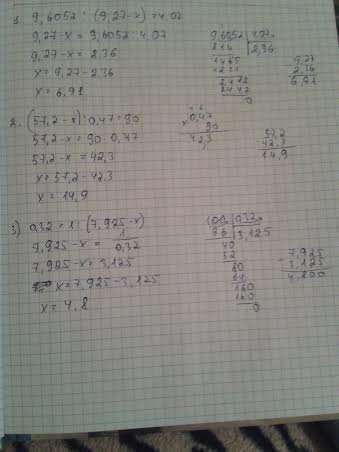 1. 9,6052 : (9,27-x)=4,07
9,27-x = 9,6052 : 4,07
9,27-x = 2,36
x = 9,27-2,36
x = 6,91
9,6052 4,07
814 2,36
1465
1221
2442
2442
0
9,27
2,36
6,91
2. (57,2-x) : 0,47=90
57,2-x = 90 · 0,47
57,2-x = 42,3
x = 57,2-42,3
x = 14,9
0,47
× 90
42,3
57,2
42,3
14,9
3) 0,32 = 1 : (7,925-x)
7,925-x = 1/0,32
7,925-x = 3,125
x = 7,925-3,125
x = 4,8
100 0,32
96 3,125
40
32
80
64
160
160
0
- 7,925
3,125
4,800